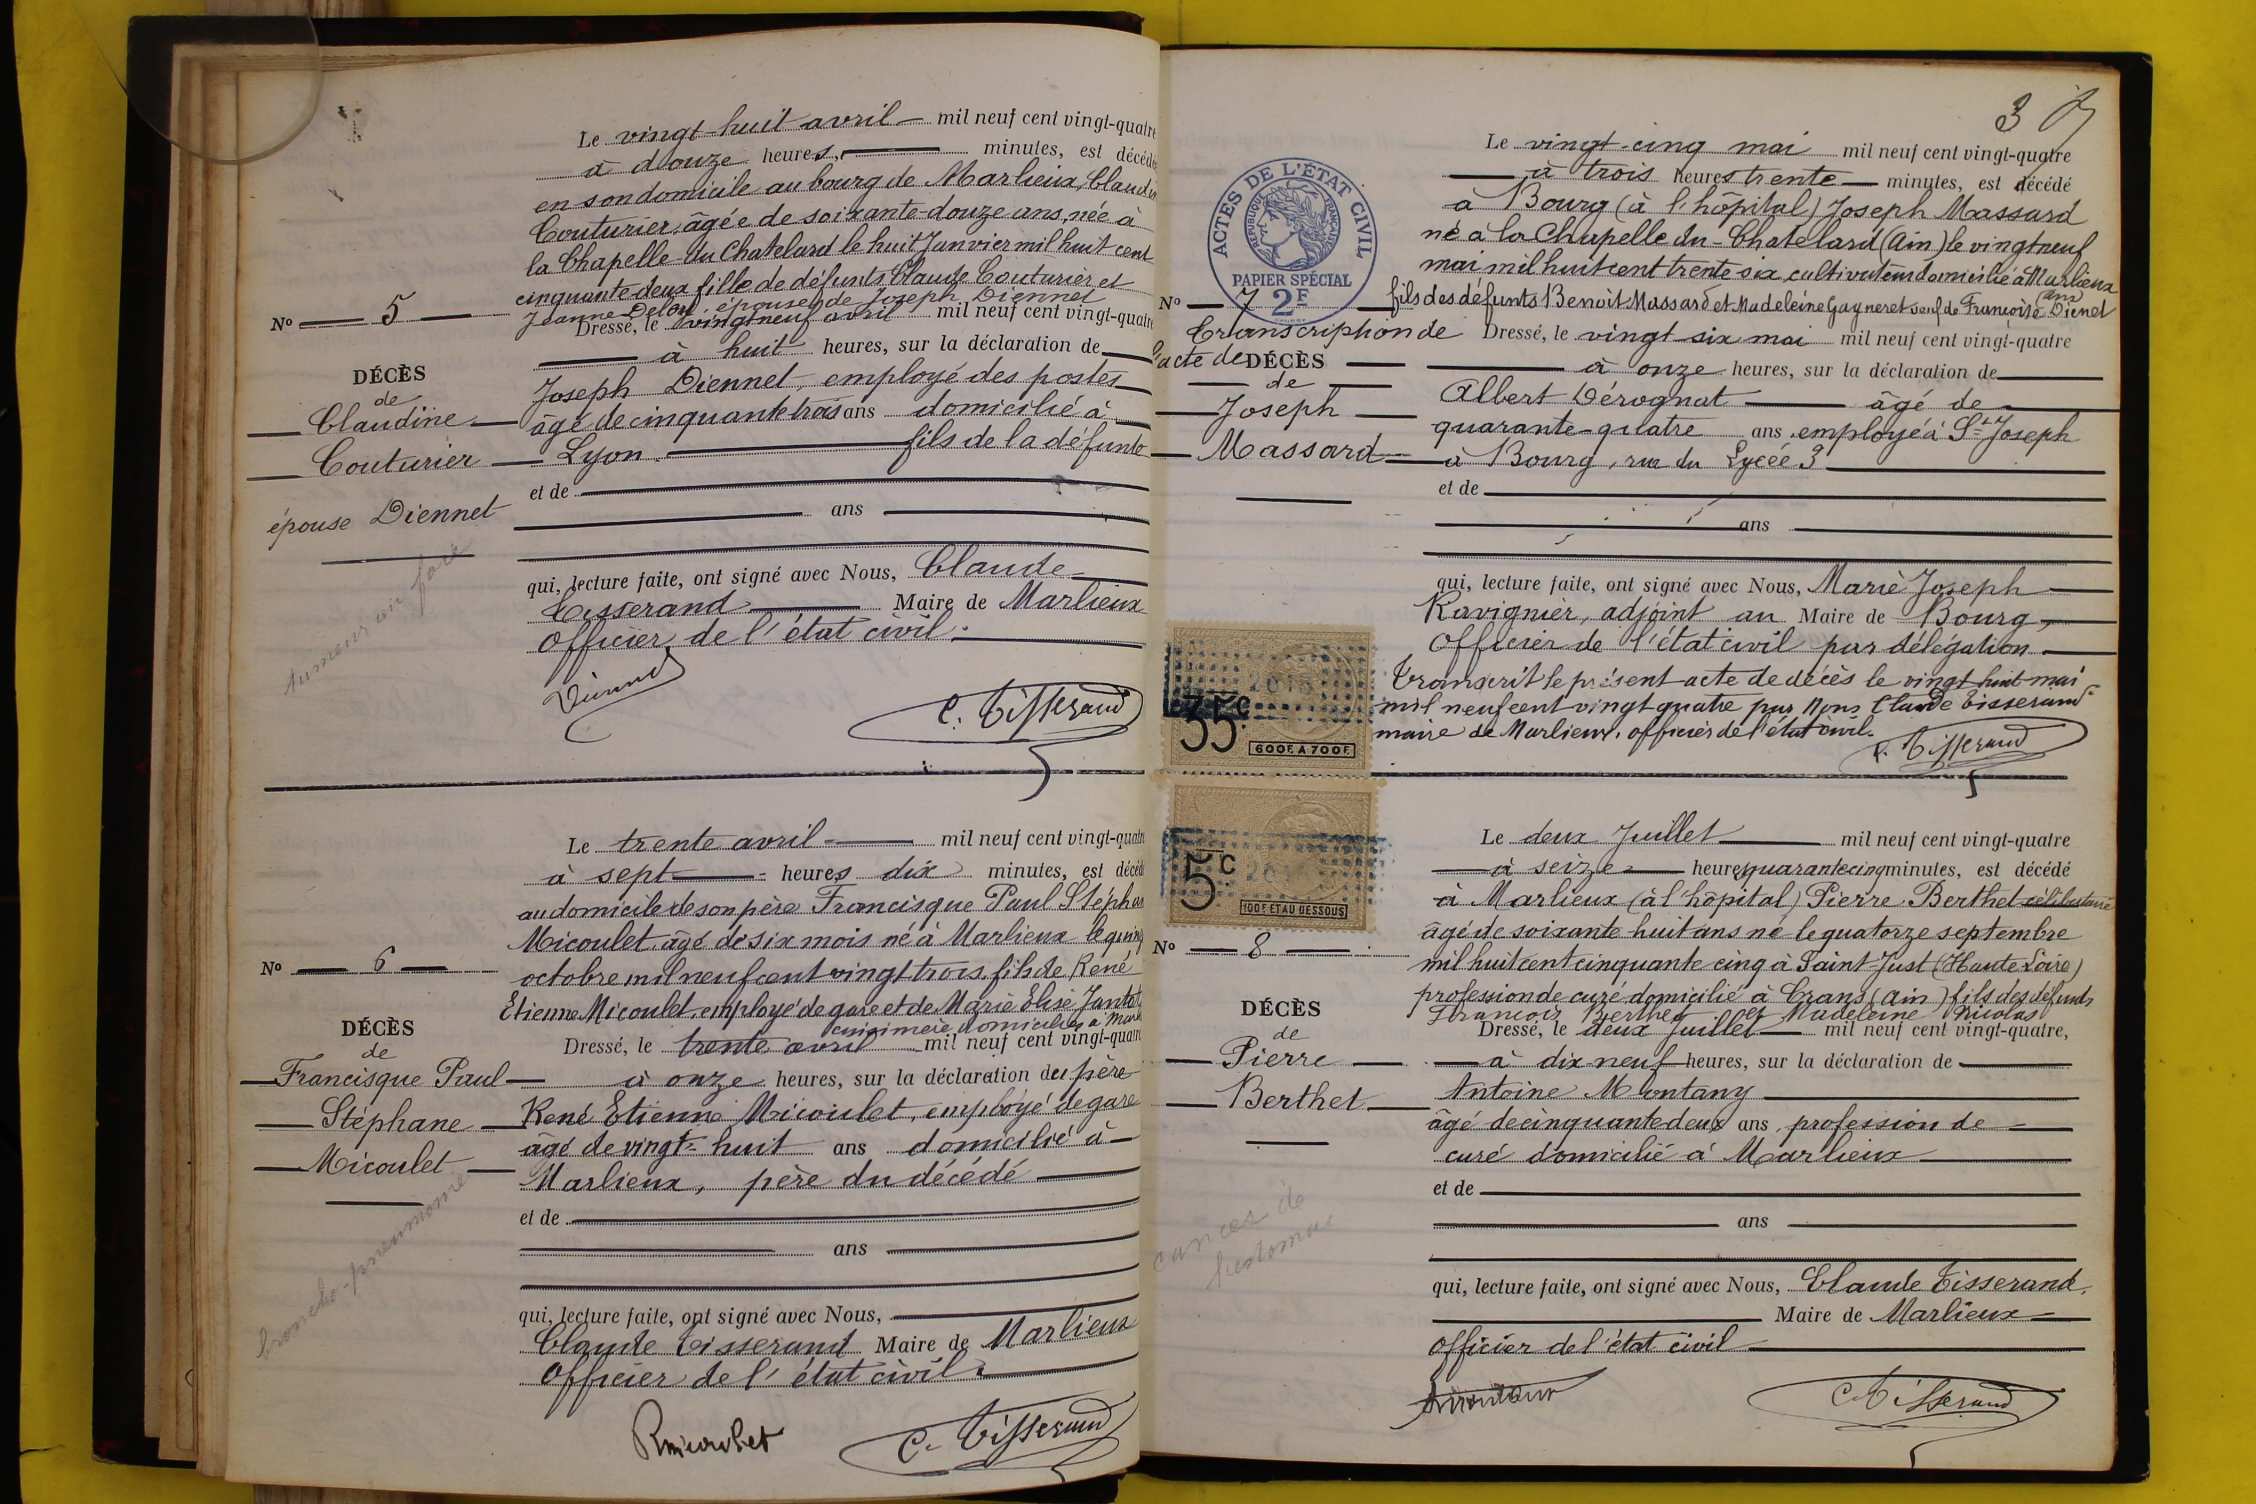 Le vingt-huit avril mil neuf cent vingt-quatre
à douze heures, minutes, est décédée
en son domicile au bourg de Marlieux, Claudine
Couturier, âgée de soixante-douze ans, née à
la Chapelle-du-Chatelard le huit Janvier mil huit cent
cinquante-deux fille de défunts Claude Couturier et
Jeanne épouse de Joseph Diennet
No 5
Dressé, le vingt neuf avril mil neuf cent vingt-quatre
à huit heures, sur la déclaration de
DÉCÈS
de
Claudine
Couturier
épouse Diennet
tumeur
Joseph Diennet, employé des postes
âgé de cinquante trois ans domicilié à
Lyon. fils de la défunte
et de
ans
qui, lecture faite, ont signé avec Nous, Claude
Tisserand Maire de Marlieux
Officier de l'état civil.
C. Tisserand
Le trente avril mil neuf cent vingt-quatre
à sept heures dix minutes, est décédé
au domicile de son père Francisque Paul Stéphane
Micoulet âgé de six mois né à Marlieux le
octobre mil neuf cent vingt trois fils de René
Etienne Micoulet employé de gare et de Marie Elise
cuisinière domiciliés a
No 6
Dressé, le trente avril mil neuf cent vingt-quatre
à onze heures, sur la déclaration du père
DÉCÈS
de
Francisque Paul
Stéphane
Micoulet
broncho-pneumonie
René Etienne Micoulet, employé de gare
âgé de vingt-huit ans domicilié à
Marlieux, père du décédé
et de
ans
qui, lecture faite, ont signé avec Nous,
Claude Tisserand Maire de Marlieux
Officier de l'état civil
C. Tisserand
3
Le vingt-cinq mai mil neuf cent vingt-quatre
à trois heures trente minutes, est décédé
à Bourg (à l'hôpital) Joseph Massard
né à la Chapelle-du-Chatelard (Ain) le vingt neuf
mai mil huit cent trente six cultivateur domicilié à Marlieux
(Ain)
fils des défunts Benoît Massard et Madeleine Gayneret veuf de Françoise Dienet
ACTES DE L'ÉTAT CIVIL
RÉPUBLIQUE FRANÇAISE
PAPIER SPÉCIAL
2F
No 7
Transcription de
l'acte de DÉCÈS
de
Joseph
Massard
Dressé, le vingt-six mai mil neuf cent vingt-quatre
à onze heures, sur la déclaration de
Albert Dérognat âgé de
quarante-quatre ans employé à St Joseph
à Bourg, rue du Lycée 3
et de
ans
qui, lecture faite, ont signé avec Nous, Marie Joseph
Ravignier, adjoint au Maire de Bourg,
Officier de l'état civil par délégation
Transcrit le présent acte de décès le vingt huit mai
mil neuf cent vingt quatre par Nous Claude Tisserand
maire de Marlieux, officier de l'état civil.
C. Tisserand
35c
600F. A 700F.
5c
100F ET AU DESSOUS
Le deux Juillet mil neuf cent vingt-quatre
à seize heures quarante cinq minutes, est décédé
à Marlieux (à l'hôpital) Pierre Berthet célibataire
âgé de soixante huit ans né le quatorze septembre
mil huit cent cinquante cinq à Saint-Just (Haute Loire)
profession de curé domicilié à Crans (Ain) fils des défunts
François Berthet et Madeleine Nicolas
No 8
Dressé, le deux Juillet mil neuf cent vingt-quatre,
à dix neuf heures, sur la déclaration de
DÉCÈS
de
Pierre
Berthet
cancer de
l'estomac
Antoine Montany
âgé de cinquante-deux ans, profession de
curé domicilié à Marlieux
et de
ans
qui, lecture faite, ont signé avec Nous, Claude Tisserand,
Maire de Marlieux
Officier de l'état civil
C. Tisserand